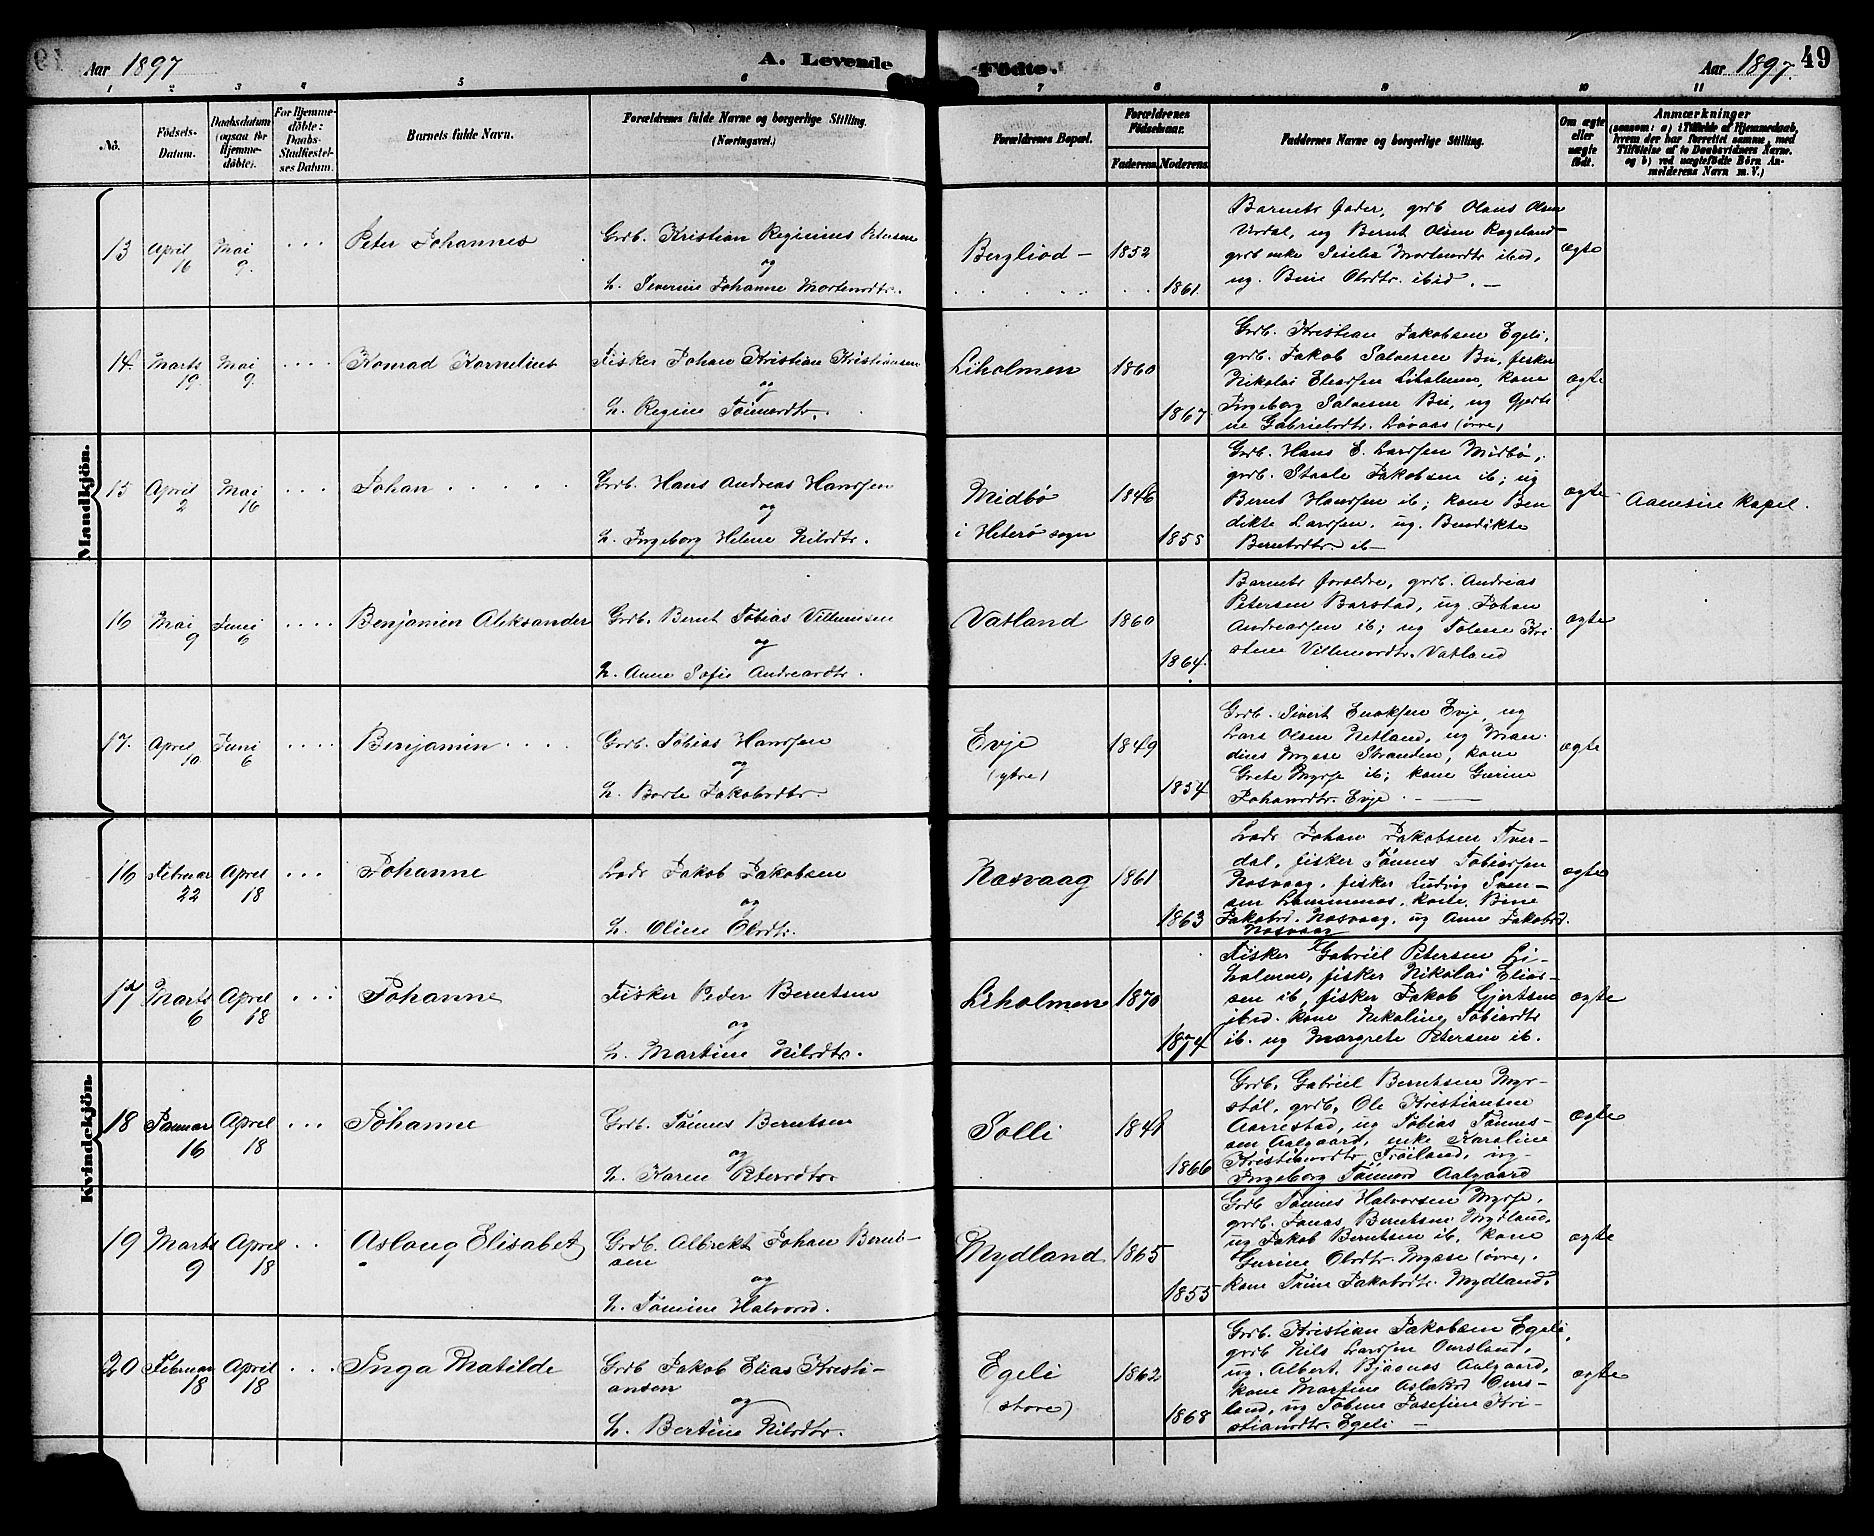 Aar 1897
A. Levende
Födte.
Aar 1897.
49
1 2 3 4 5 6 7 8 9 10 11
Nö.
Födsels-
Datum.
Daabsdatum
(ogsaa for
Hjemme-
döbte).
For Hjemme-
döbte:
Daabs-
Stadfæstel-
ses Datum.
Barnets fulde Navn.
Forældrenes fulde Navne og borgerlige Stilling.
(Næringsvei.)
Forældrenes Bopæl.
Forældrenes
Födselsaar.
Faderens.
Moderens.
Faddernes Navne og borgerlige Stilling.
Om ægte
eller
uægte
födt.
Anmærkninger
(saasom: a) i Tilfælde af Hjemmedaab,
hvem der har forrettet samme, med
Tilföielse af to Daabsvidners Navne.
og b) ved uægtefödte Börn An-
melderens Navn m. V.)
Mandkjön.
13 April 16 Mai 9. Peter Johannes
Grdb. Kristian Reginius Petersen
og
h. Severine Johanne Mortensdtr.
Bergliod - 1852
1861
Barnets fader, grdb Olaus Olsen
Urdal, ug Bernt Olsen Rageland
grdb enke Siselia Mortensdtr ibid,
ug. Bine Olsdtr. ibid. -
ægte
14. Marts 19 Mai 9. Konrad Kornelius
Fisker Johan Kristian Kristiansen
og
h. Regine Tönnesdtr.
Liholmen 1860
1867
Grdb. Kristian Jakobsen Egeli,
grdb. Jakob Salvesen Bu, fisker
Nikolai Eliassen Liholmen, kone
Ingeborg Salvesen Bu, ug Gjerti
ne Gabrielsdtr. Lövaas (övre)
ægte
15 April 2 Mai 16 Johan
Grdb. Hans Andreas Hanssen
og
h. Ingeborg Helene Nilsdtr.
Midbö 1846
i Heterö sogn 1855
Grdb. Hans E. Larssen Midbö,
grdb. Staale Jakobsen ib; ug
Bernt Hanssen ib; kone Ben
dikte Larssen, ug. Bendikte
Berntsdtr. ib -
ægte
Aanesire kapel.
16 Mai 9 Juni 6 Benjamin Aleksander
Grdb. Bernt Tobias Villumsen
og
h. Anne Sofie Andreasdtr.
Vatland 1860
1864.
Barnets foraldre, grdb. Andreas
Petersen Barstad, ug Johan
Andreassen ib; ug Tolene Kri
stine Villumsdtr. Vatland
ægte
17. April 10 Juni 6 Benjamin
Grdb. Tobias Hanssen
og
h. Borte Jakobsdtr.
Evje 1849
(ytre) 1854
Grdb. Sivert Enoksen Evje, ug
Lars Olsen Netland, ug Man
dius Myrse Stranden, kone
Grete Myrse ib; kone Gurine
Johansdtr. Evje. -
ægte
Kvindekjön.
16 Februar 22 April 18 Johanne
Lods Jakob Jakobsen
og
h. Oline Olsdtr.
Nasvaag 1861
1863
Lods Johan Jakobsen Tver-
dal, fisker Tönnes Tobiassen
Nasvaag, fisker Ludvig Sven-
sen kone Bine
Jakobsd. Nasvaag, ug Anne Jakobsd.
Nasvaag
ægte
17 Marts 6 April 18 Johanne
Fisker Peder Berntsen
og
h. Martine Nilsdtr.
Liholmen 1870
1874
Fisker Gabriel Petersen Li-
holmen, fisker Nikolai Elias-
sen ib, fisker Jakob Gjertsen
ibid. kone Nikoline Tobiasdtr
ib. ug Margrete Petersen ib.
ægte
18 Januar 16 April 18 Johanne
Grdb. Tönnes Berntsen
og
h. Karen Petersdtr.
Solli 1841
1866
Grdb. Gabriel Berntsen Myr-
stöl, grdb. Ole Kristiansen
Aarrestad, ug Tobias Tönnes-
sen Aalgaard, enke Karoline
Kristiansdtr Tröiland, ug
Ingeborg Tönnesd Aalgaard
ægte
19 Marts 9 April 18 Aslaug Elisabet
Grdb. Albrekt Johan Bernt-
sen
og
h. Tönnine Halvorsd.
Mydland 1865
1855
Grdb Tönnes Halvorsen Myrse,
grdb. Jonas Berntsen Mydland,
ug Jakob Berntsen ib, kone
Gurine Olsdtr. Myrse (övre),
kone Trine Jakobsdtr. Mydland.
ægte
20 Februar 18 April 18 Inga Matilde
Grdb Jakob Elias Kristi-
ansen
og
h. Bertine Nilsdtr.
Egeli 1862
(store) 1868
Grdb. Kristian Jakobsen Egeli,
grdb Nils Larssen Oursland,
ug. Albert Bjaanes Aalgaard,
kone Martine Aslaksd Ours-
land, ug Tobine Josefine Kri-
stiansdtr. Egeli -
ægte